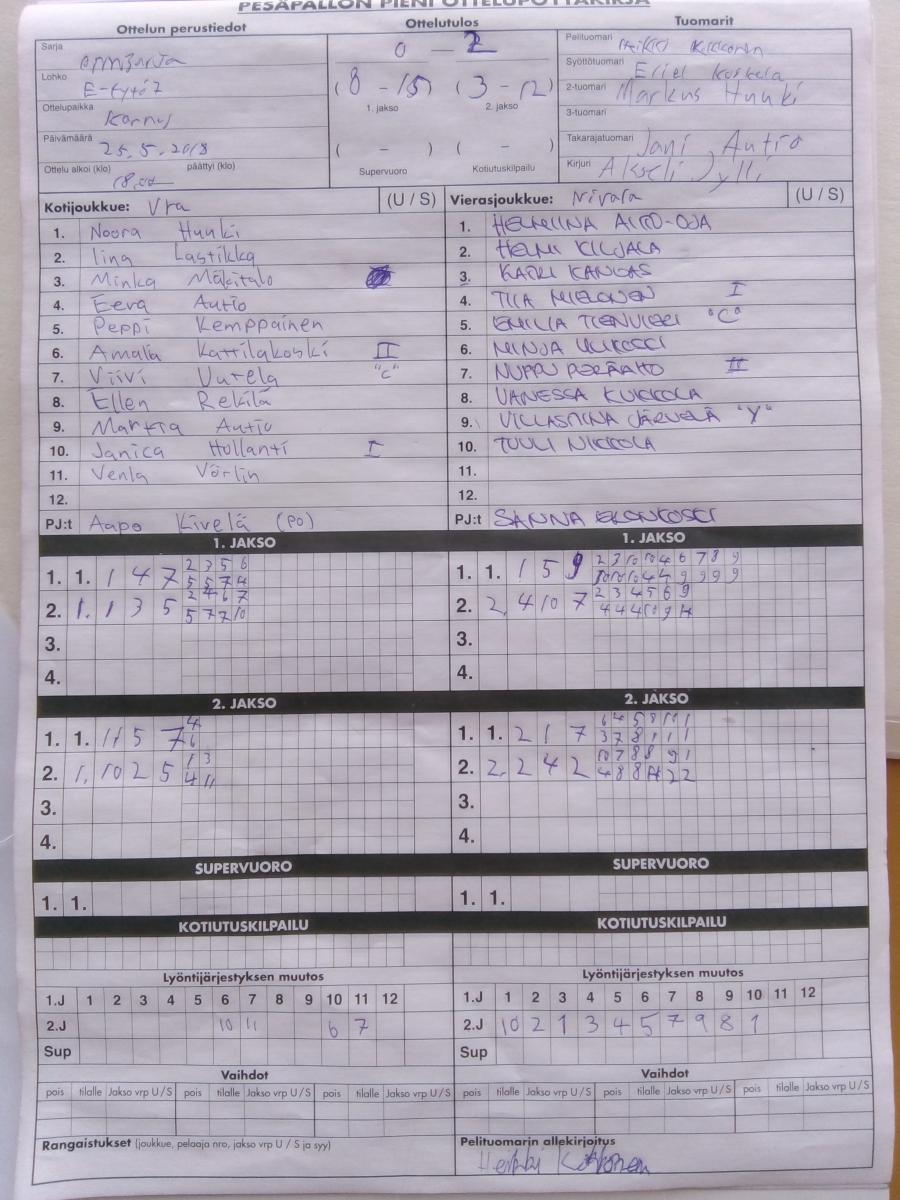 PESÄPALLON PIENI OTTELUPÖYTÄKIRJA
Ottelun perustiedot
Sarja
Lohko E-tytöt
Ottelupaikka Kannus
Päivämäärä 25.5.2018
Ottelu alkoi (klo) 18.00 päättyi (klo)
Ottelutulos
0 - 2
(8 - 15) (3 - 12)
1. jakso 2. jakso
( - ) ( - )
Supervuoro Kotiutuskilpailu
Tuomarit
Pelituomari
Syöttötuomari Koskela
2-tuomari Markus Huuki
3-tuomari
Takarajatuomari Jani Autio
Kirjuri Akseli Jylli
Kotijoukkue: Ura (U / S)
1. Noora Huuki
2. Iina Lastikka
3. Minka Mäkitalo
4. Eeva Autio
5. Peppi Kemppainen
6. Amalia Kattilakoski II
7. Viivi Uutela "C"
8. Ellen Rekilä
9. Martta Autio
10. Janica Hollanti I
11. Venla Vörlin
12.
PJ:t Aapo Kivelä (PO)
Vierasjoukkue: Nivala (U / S)
1. HELMIINA AITTO-OJA
2. HELMI KILJALA
3. KATRI KANGAS
4. TIIA MIELONEN I
5. EMILIA "C"
6. MINJA
7. NUPPU PERÄAHO II
8. VANESSA KUKKOLA
9. JÄRVELÄ "Y"
10. TUULI NIKKOLA
11.
12.
PJ:t SANNA
1. JAKSO
1. 1. 1 4 7 2 3 5 6
5 5 7 4
2. 1. 1 3 5 2 4 6 7
5 7 7 10
3.
4.
1. JAKSO
1. 1. 1 5 9 2 3 10 10 4 6 7 8 9
10 10 10 4 4 9 9 9 9
2. 2. 4 10 7 2 3 4 5 6 9
4 4 4 10 9
3.
4.
2. JAKSO
1. 1. 11 5 7 4
6
2. 1. 10 2 5 1 3
4 11
3.
4.
2. JAKSO
1. 1. 2 1 7 6 4 5 8 10 1
3 7 8 1 1 1
2. 2. 2 4 2 10 7 8 8 9 1
4 8 8 2 2
3.
4.
SUPERVUORO
1. 1.
SUPERVUORO
1. 1.
KOTIUTUSKILPAILU
KOTIUTUSKILPAILU
Lyöntijärjestyksen muutos
1.J 1 2 3 4 5 6 7 8 9 10 11 12
2.J 10 11 6 7
Sup
Lyöntijärjestyksen muutos
1.J 1 2 3 4 5 6 7 8 9 10 11 12
2.J 10 2 1 3 4 5 7 9 8 1
Sup
Vaihdot
pois tilalle Jakso vrp U / S pois tilalle Jakso vrp U / S pois tilalle Jakso vrp U / S
Vaihdot
pois tilalle Jakso vrp U / S pois tilalle Jakso vrp U / S pois tilalle Jakso vrp U / S
Rangaistukset (joukkue, pelaaja nro, jakso vrp U / S ja syy)
Pelituomarin allekirjoitus